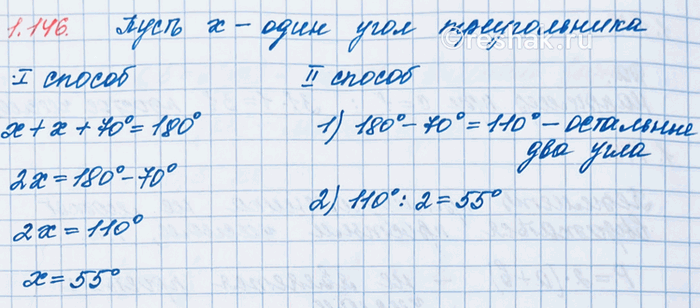 1.146. Пусть x – один угол треугольника
reshak.ru
I способ
x + x + 70° = 180°
2x = 180° – 70°
2x = 110°
x = 55°
II способ
1) 180° – 70° = 110° – остальные
два угла
2) 110° : 2 = 55°